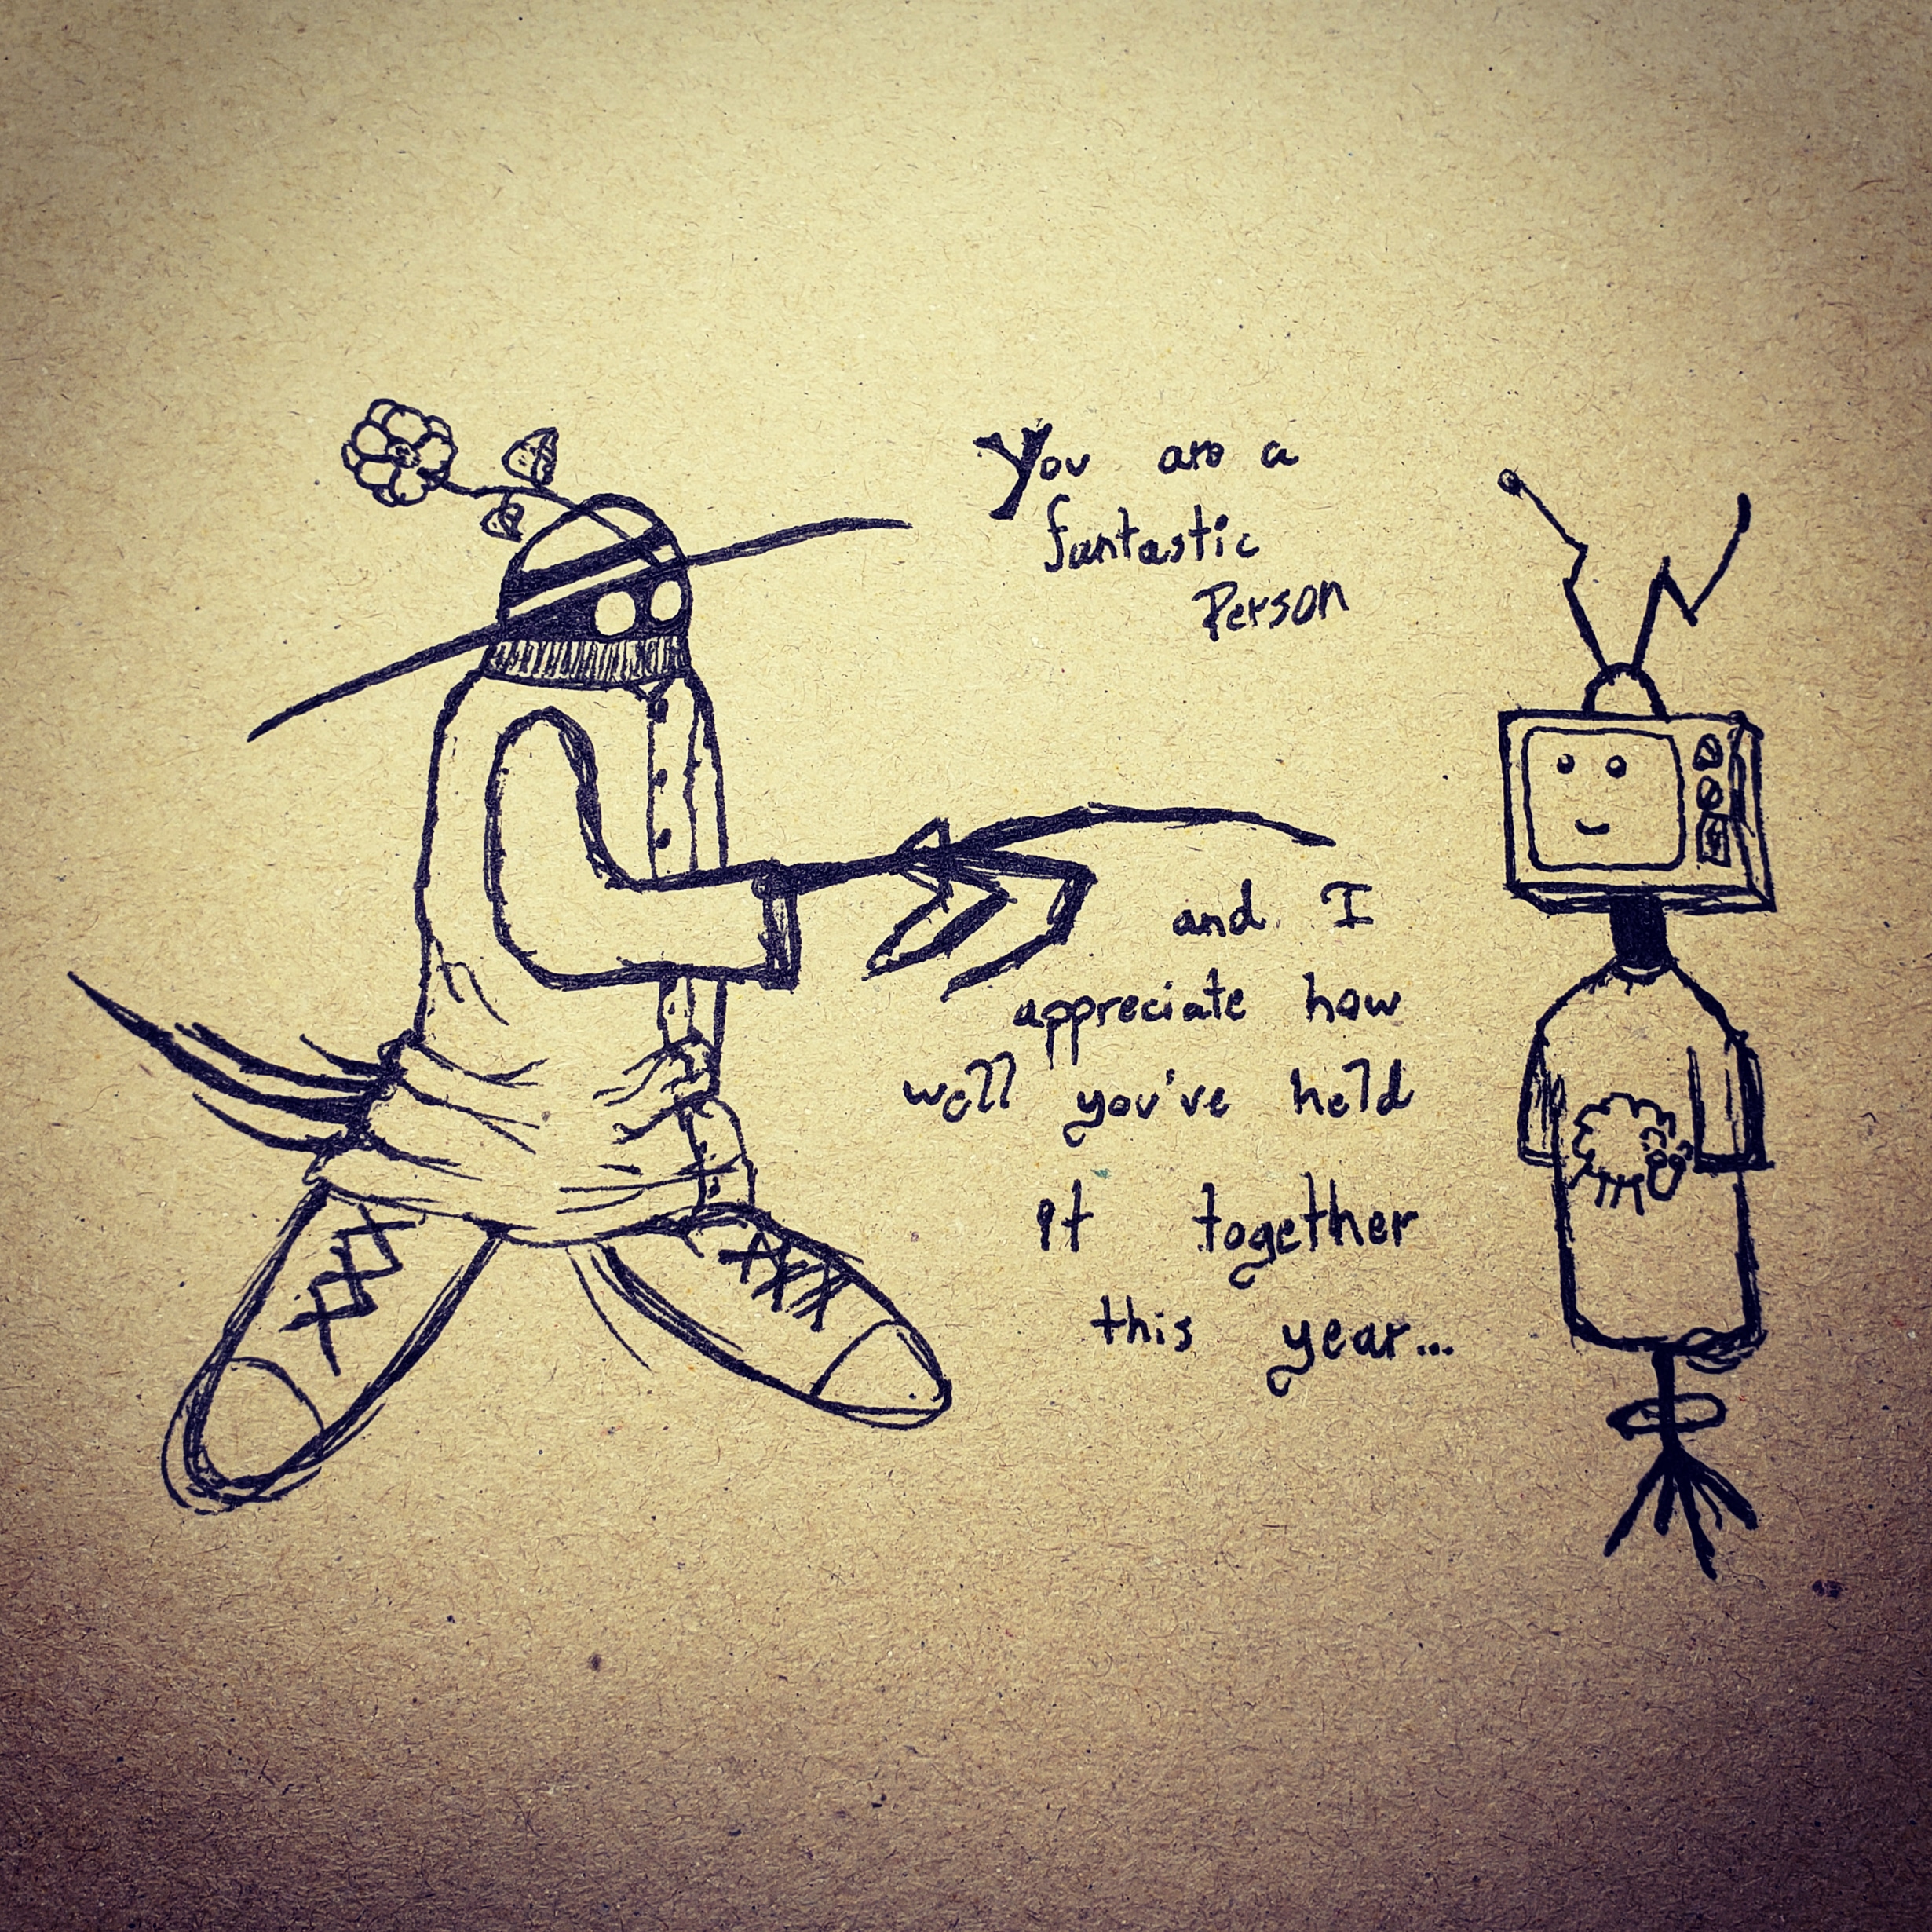 You are a
fantastic
Person
and I
appreciate how
well you've held
it together
this year...